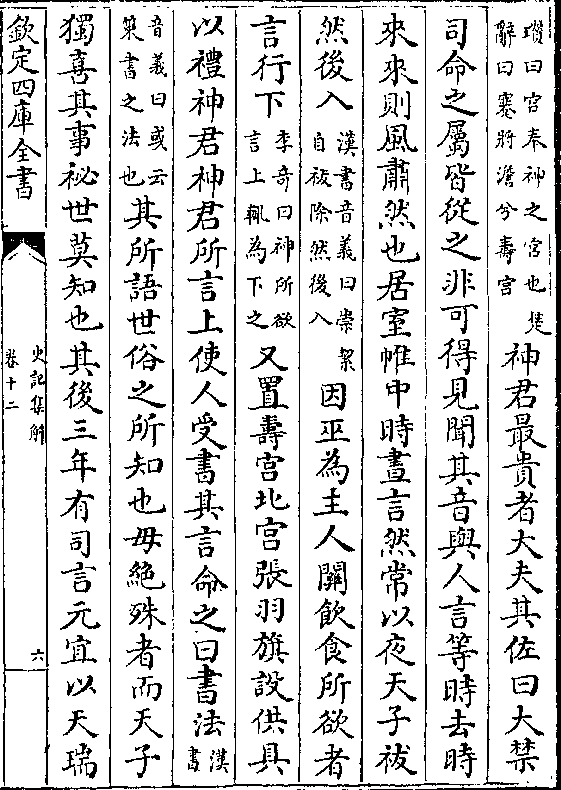 瓚曰宮奉神之宮也楚
辭曰蹇將澹兮壽宮
神君最貴者大夫其佐曰大禁
司命之屬皆從之非可得見聞其音與人言等時去時
來來則風肅然也居室帷中時晝言然常以夜天子祓
然後入
漢書音義曰崇絜
自祓除然後入
因巫為主人關飲食所欲者
言行下
李奇曰神所欲
言上輒為下之
又置壽宮北宮張羽旗設供具
以禮神君神君所言上使人受書其言命之曰書法
漢書
音義曰或云
策書之法也
其所語世俗之所知也毋絶殊者而天子
獨喜其事祕世莫知也其後三年有司言元宜以天瑞
欽定四庫全書
史記集解
卷十二
六